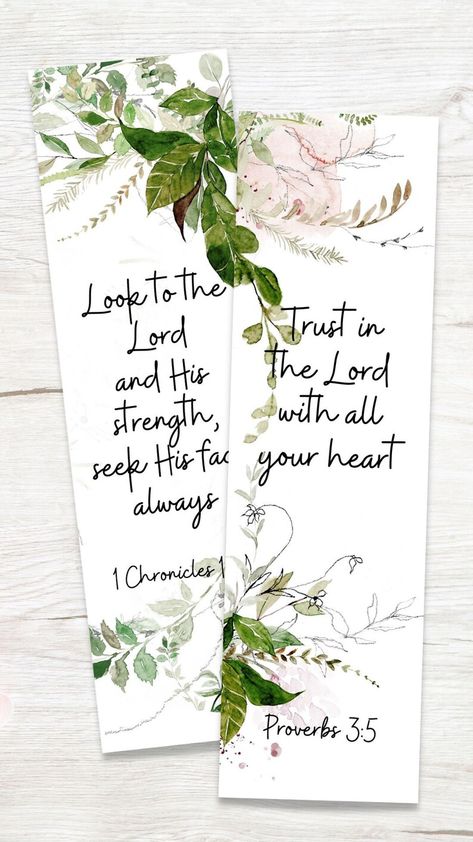 Look to the
Lord
and His
strength,
seek His fac
always
1 Chronicles 1
Trust in
the Lord
with all
your heart
Proverbs 3:5